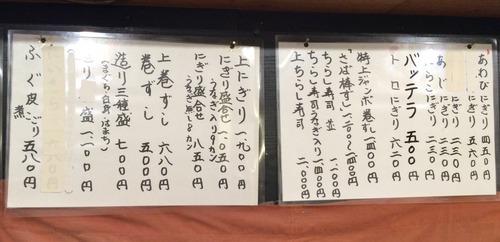 あわび にぎり 四五〇円
にぎり 五六〇円
あじ にぎり 二三〇円
にぎり 二三〇円
バッテラ 五〇〇円
トロにぎり 六二〇円
特上ジャンボ巻ずし 一四〇〇円
「さば棒すし」 一二〇〇〜一四〇〇円
ちらし寿司 並 一、一〇〇円
ちらし寿司うなぎ入り 一、四〇〇円
上ちらし寿司 二、〇〇〇円
上にぎり 一、九〇〇円
にぎり盛合せ 一、〇五〇円
うなぎ入り9カン
にぎり盛合せ 八五〇円
うなぎ無し8カン
上巻ずし 六八〇円
巻ずし 五〇〇円
造り三種盛 七〇〇円
(まぐろ・白身・はまち)
盛 一、一〇〇円
ふぐ皮煮こごり 五八〇円